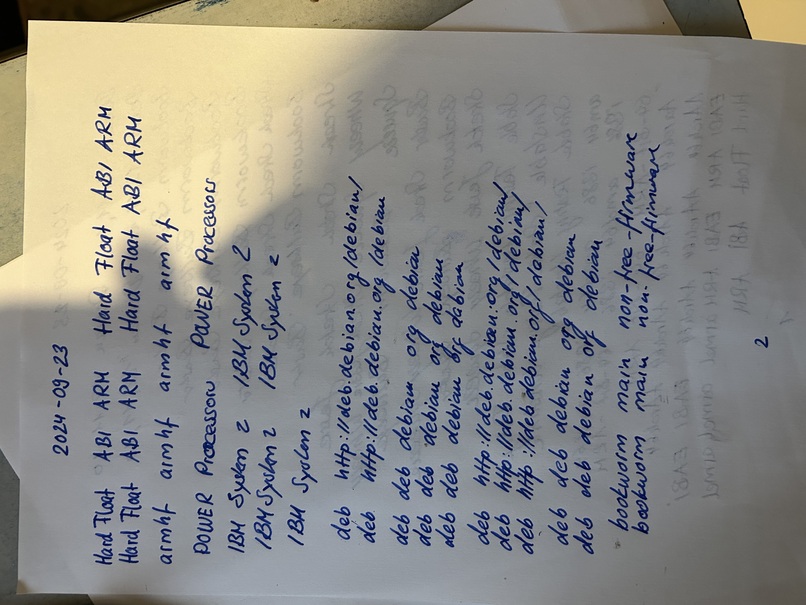 2024-09-23
Hard Float ABI ARM Hard Float ABI ARM
Hard Float ABI ARM Hard Float ABI ARM
armhf armhf armhf armhf
POWER Processors POWER Processors
IBM System z IBM System z
IBM System z IBM System z
IBM System z
deb http://deb.debian.org/debian/
deb http://deb.debian.org/debian
deb deb debian org debian
deb deb debian org debian
deb deb debian org dabian
deb http://deb.debian.org/debian/
deb http://deb.debian.org/debian/
deb http://deb.debian.org/dabian/
deb deb debian org debian
deb deb debian org debian
bookworm main non-free-firmware
bookworm main non-free-firmware
2